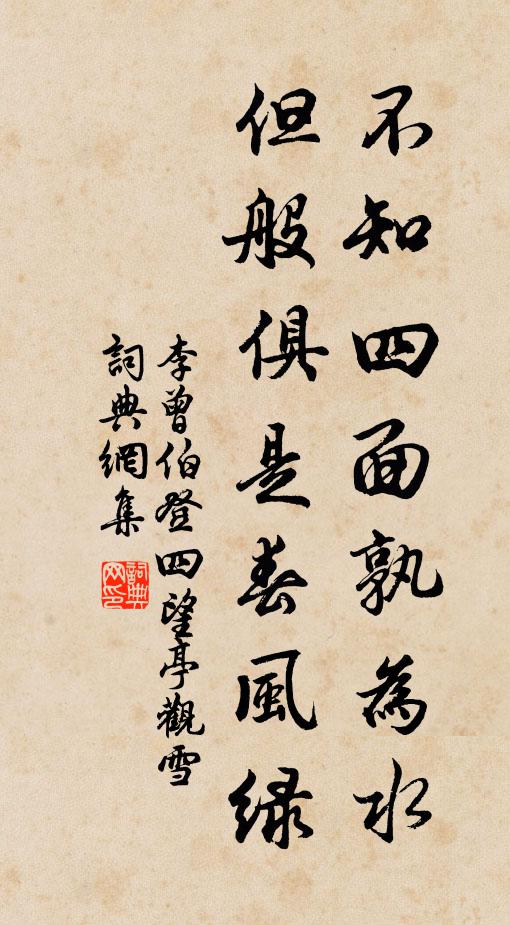 不知四面孰為水
但般俱是春風綠
李曾伯登四望亭觀雪
詞典網集
詞典網印